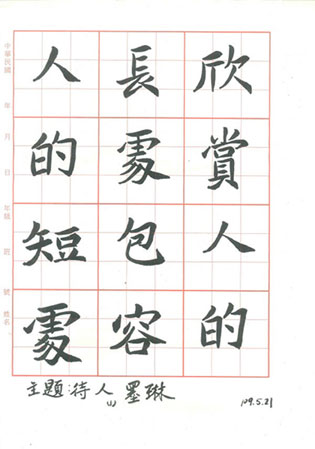 欣賞人的
長處包容
人的短處
中華民國 年 月 日 年級 班 號 姓名
主題:待人(1) 墨琳